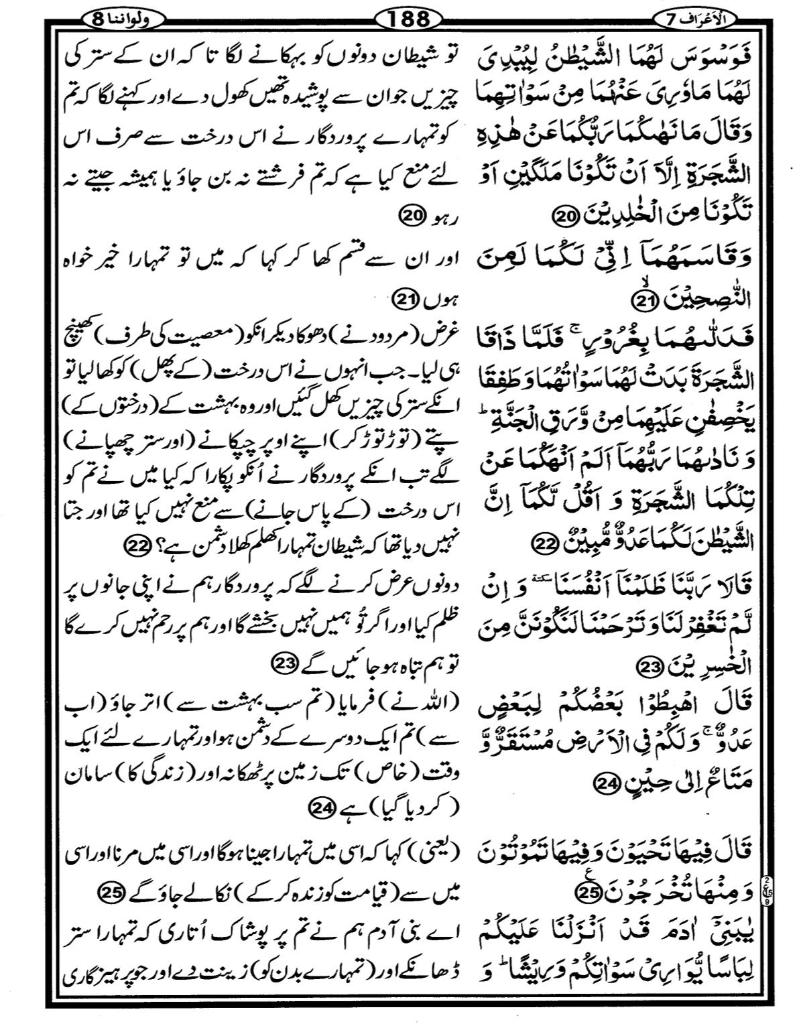 الاعراف 7
188
ولواننا 8
فَوَسْوَسَ لَهُمَا الشَّيْطٰنُ لِيُبْدِىَ
لَهُمَا مَاوٗرِىَ عَنْهُمَا مِنْ سَوْاٰتِهِمَا
وَقَالَ مَا نَهٰىكُمَا رَبُّكُمَا عَنْ هٰذِهِ
الشَّجَرَةِ اِلَّاۤ اَنْ تَكُوْنَا مَلَكَيْنِ اَوْ
تَكُوْنَا مِنَ الْخٰلِدِيْنَ 20
وَقَاسَمَهُمَاۤ اِنِّىْ لَكُمَا لَمِنَ
النّٰصِحِيْنَۙ 21
فَدَلّٰىهُمَا بِغُرُوْرٍۚ فَلَمَّا ذَاقَا
الشَّجَرَةَ بَدَتْ لَهُمَا سَوْاٰتُهُمَا وَطَفِقَا
يَخْصِفٰنِ عَلَيْهِمَا مِنْ وَّرَقِ الْجَنَّةِؕ
وَنَادٰىهُمَا رَبُّهُمَاۤ اَلَمْ اَنْهَكُمَا عَنْ
تِلْكُمَا الشَّجَرَةِ وَ اَقُلْ لَّكُمَاۤ اِنَّ
الشَّيْطٰنَ لَكُمَا عَدُوٌّ مُّبِيْنٌ 22
قَالَا رَبَّنَا ظَلَمْنَاۤ اَنْفُسَنَا وَ اِنْ
لَّمْ تَغْفِرْ لَنَا وَتَرْحَمْنَا لَنَكُوْنَنَّ مِنَ
الْخٰسِرِيْنَ 23
قَالَ اهْبِطُوْا بَعْضُكُمْ لِبَعْضٍ
عَدُوٌّۚ وَلَكُمْ فِى الْاَرْضِ مُسْتَقَرٌّ وَّ
مَتَاعٌ اِلٰى حِيْنٍ 24
قَالَ فِيْهَا تَحْيَوْنَ وَفِيْهَا تَمُوْتُوْنَ
وَمِنْهَا تُخْرَجُوْنَ 25
يٰبَنِىْۤ اٰدَمَ قَدْ اَنْزَلْنَا عَلَيْكُمْ
لِبَاسًا يُّوَارِىْ سَوْاٰتِكُمْ وَرِيْشًاؕ وَ
تو شیطان دونوں کو بہکانے لگا تاکہ ان کے ستر کی
چیزیں جو ان سے پوشیدہ تھیں کھول دے اور کہنے لگا کہ تم
کو تمہارے پروردگار نے اس درخت سے صرف اس
لئے منع کیا ہے کہ تم فرشتے نہ بن جاؤ یا ہمیشہ جیتے نہ
رہو 20
اور ان سے قسم کھا کر کہا کہ میں تو تمہارا خیر خواہ
ہوں 21
غرض (مردود نے) دھوکا دیکر انکو (معصیت کی طرف) کھینچ
ہی لیا۔ جب انہوں نے اس درخت (کے پھل) کو کھا لیا تو
انکے ستر کی چیزیں کھل گئیں اور وہ بہشت کے (درختوں کے)
پتے (توڑ توڑ کر) اپنے اوپر چپکانے (اور ستر چھپانے)
لگے تب انکے پروردگار نے اُنکو پکارا کہ کیا میں نے تم کو
اس درخت (کے پاس جانے) سے منع نہیں کیا تھا اور جتا
نہیں دیا تھا کہ شیطان تمہارا کھلم کھلا دشمن ہے؟ 22
دونوں عرض کرنے لگے کہ پروردگار ہم نے اپنی جانوں پر
ظلم کیا اور اگر تُو ہمیں نہیں بخشے گا اور ہم پر رحم نہیں کرے گا
تو ہم تباہ ہو جائیں گے 23
(اللہ نے) فرمایا (تم سب بہشت سے) اتر جاؤ (اب
سے) تم ایک دوسرے کے دشمن ہو اور تمہارے لئے ایک
وقت (خاص) تک زمین پر ٹھکانہ اور (زندگی کا) سامان
(کر دیا گیا) ہے 24
(یعنی) کہا کہ اسی میں تمہارا جینا ہوگا اور اسی میں مرنا اور اسی
میں سے (قیامت کو زندہ کر کے) نکالے جاؤ گے 25
اے بنی آدم ہم نے تم پر پوشاک اُتاری کہ تمہارا ستر
ڈھانکے اور (تمہارے بدن کو) زینت دے اور جو پرہیزگاری